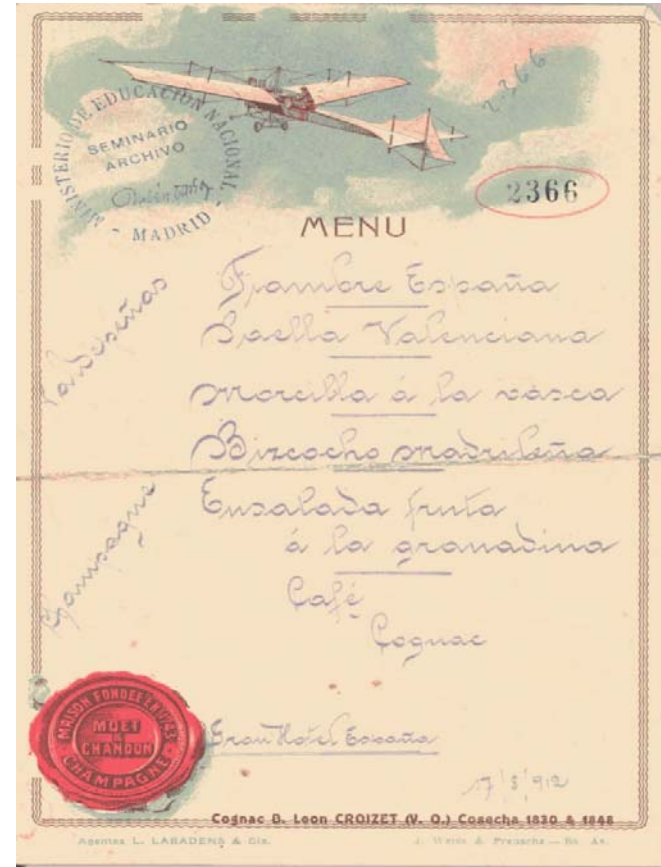 2366
MINISTERIO DE EDUCACIÓN NACIONAL
SEMINARIO
ARCHIVO
- MADRID -
2366
MENU
Fiambre España
Paella Valenciana
Morcilla á la vasca
Bizcocho Madrileña
Ensalada fruta
á la granadina
Café
Cognac
Gran Hotel España
17/8/912
MAISON FONDÉE EN 1743
MOËT
&
CHANDON
CHAMPAGNE
Cognac B. Leon CROIZET (V. O.) Cosecha 1830 & 1848
Agentes L. LABADENS & Cie.
J. Weiss & Preusche — Bs. As.